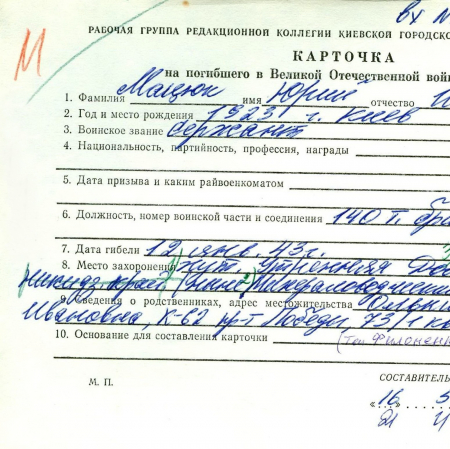 вх №
РАБОЧАЯ ГРУППА РЕДАКЦИОННОЙ КОЛЛЕГИИ КИЕВСКОЙ ГОРОДСКО
М
КАРТОЧКА
на погибшего в Великой Отечественной вой
1. Фамилия Мацюк имя Юрий отчество
2. Год и место рождения 1923 г. Киев
3. Воинское звание сержант
4. Национальность, партийность, профессия, награды
5. Дата призыва и каким райвоенкоматом
6. Должность, номер воинской части и соединения 140 т. бр
7. Дата гибели 12 янв. 43 г.
8. Место захоронения хут. Утренняя
9. Сведения о родственниках, адрес местожительства
Ивановна, К-62 пр-т Победы, 73/1 кв
10. Основание для составления карточки
М. П.
СОСТАВИТЕЛЬ
«16
21